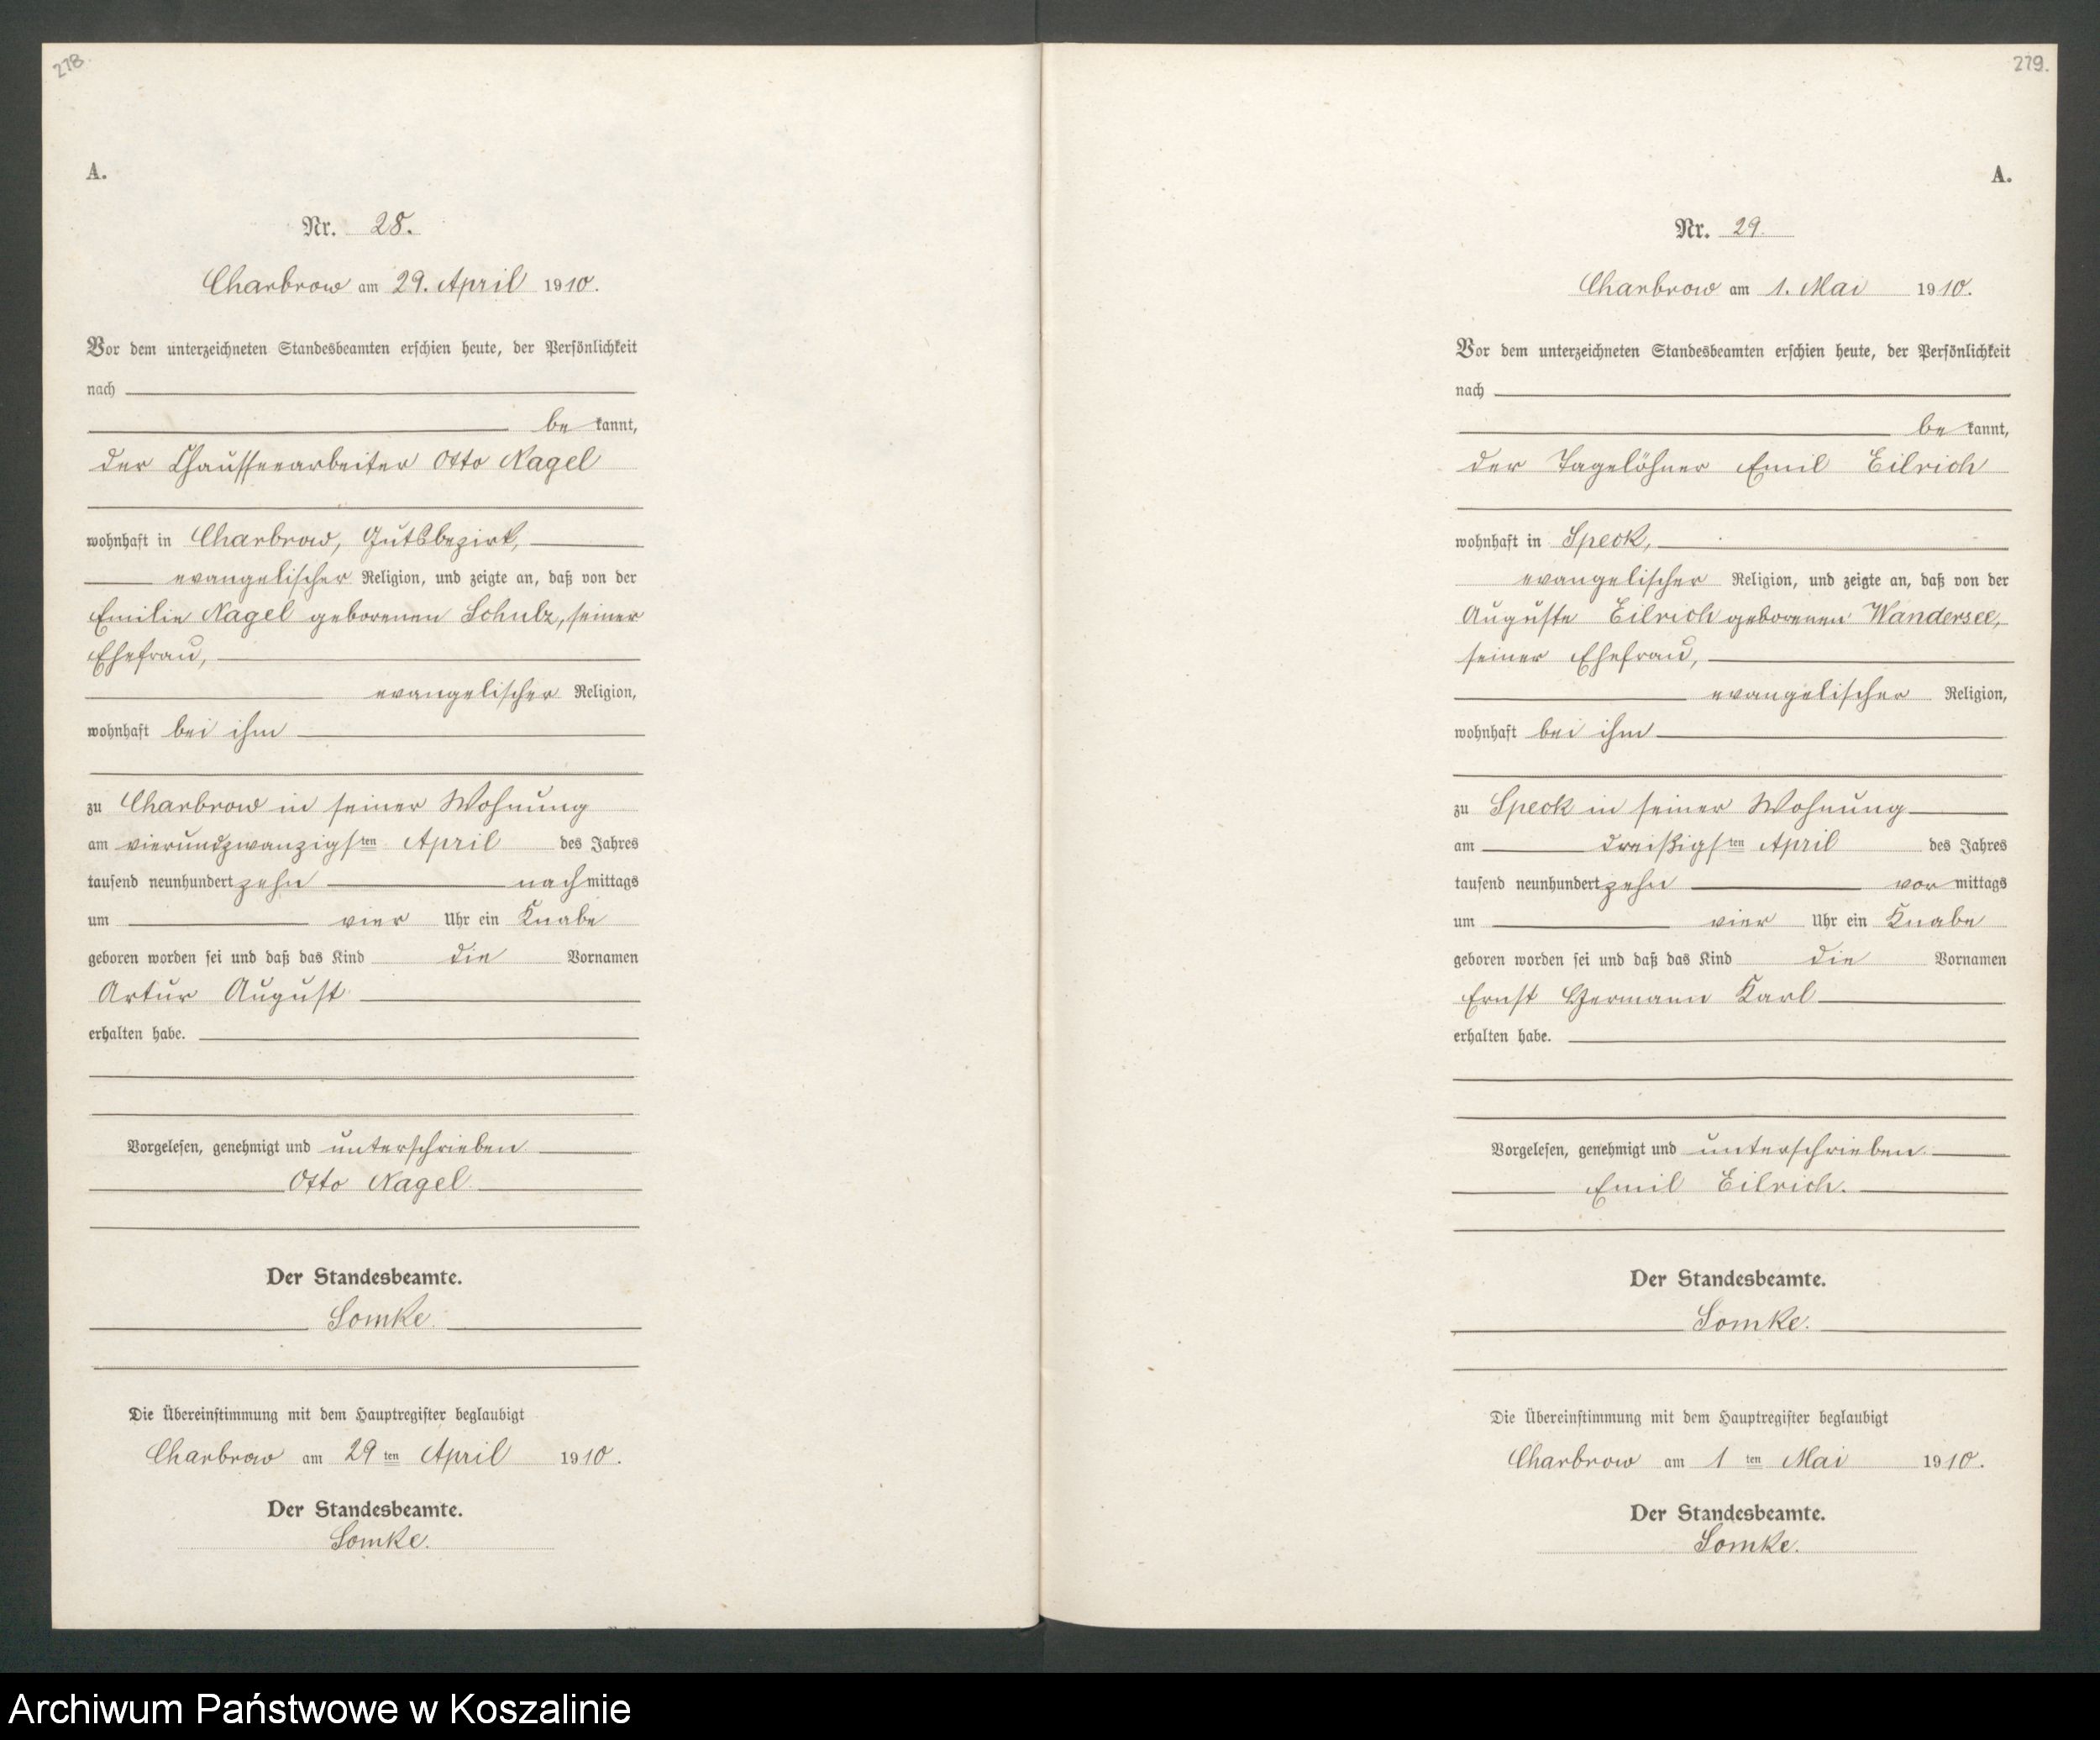 278.
A.
Nr. 28.
Charbrow am 29. April 1910.
Vor dem unterzeichneten Standesbeamten erschien heute, der Persönlichkeit
nach
be kannt,
der Chausseearbeiter Otto Nagel
wohnhaft in Charbrow, Gutsbezirk,
evangelischer Religion, und zeigte an, daß von der
Emilie Nagel geborenen Schulz, seiner
Ehefrau,
evangelischer Religion,
wohnhaft bei ihm
zu Charbrow in seiner Wohnung
am vierundzwanzigsten April des Jahres
tausend neunhundert zehn nachmittags
um vier Uhr ein Knabe
geboren worden sei und daß das Kind die Vornamen
Artur August
erhalten habe.
Vorgelesen, genehmigt und unterschrieben
Otto Nagel
Der Standesbeamte.
Somke.
Die Übereinstimmung mit dem Hauptregister beglaubigt
Charbrow am 29 ten April 1910.
Der Standesbeamte.
Somke.
279.
A.
Nr. 29.
Charbrow am 1. Mai 1910.
Vor dem unterzeichneten Standesbeamten erschien heute, der Persönlichkeit
nach
be kannt,
der Tagelöhner Emil Eilrich
wohnhaft in Speck,
evangelischer Religion, und zeigte an, daß von der
Auguste Eilrich geborenen Wandersee,
seiner Ehefrau,
evangelischer Religion,
wohnhaft bei ihm
zu Speck in seiner Wohnung
am dreißigsten April des Jahres
tausend neunhundert zehn vormittags
um vier Uhr ein Knabe
geboren worden sei und daß das Kind die Vornamen
Ernst Hermann Karl
erhalten habe.
Vorgelesen, genehmigt und unterschrieben
Emil Eilrich.
Der Standesbeamte.
Somke.
Die Übereinstimmung mit dem Hauptregister beglaubigt
Charbrow am 1 ten Mai 1910.
Der Standesbeamte.
Somke.
Archiwum Państwowe w Koszalinie